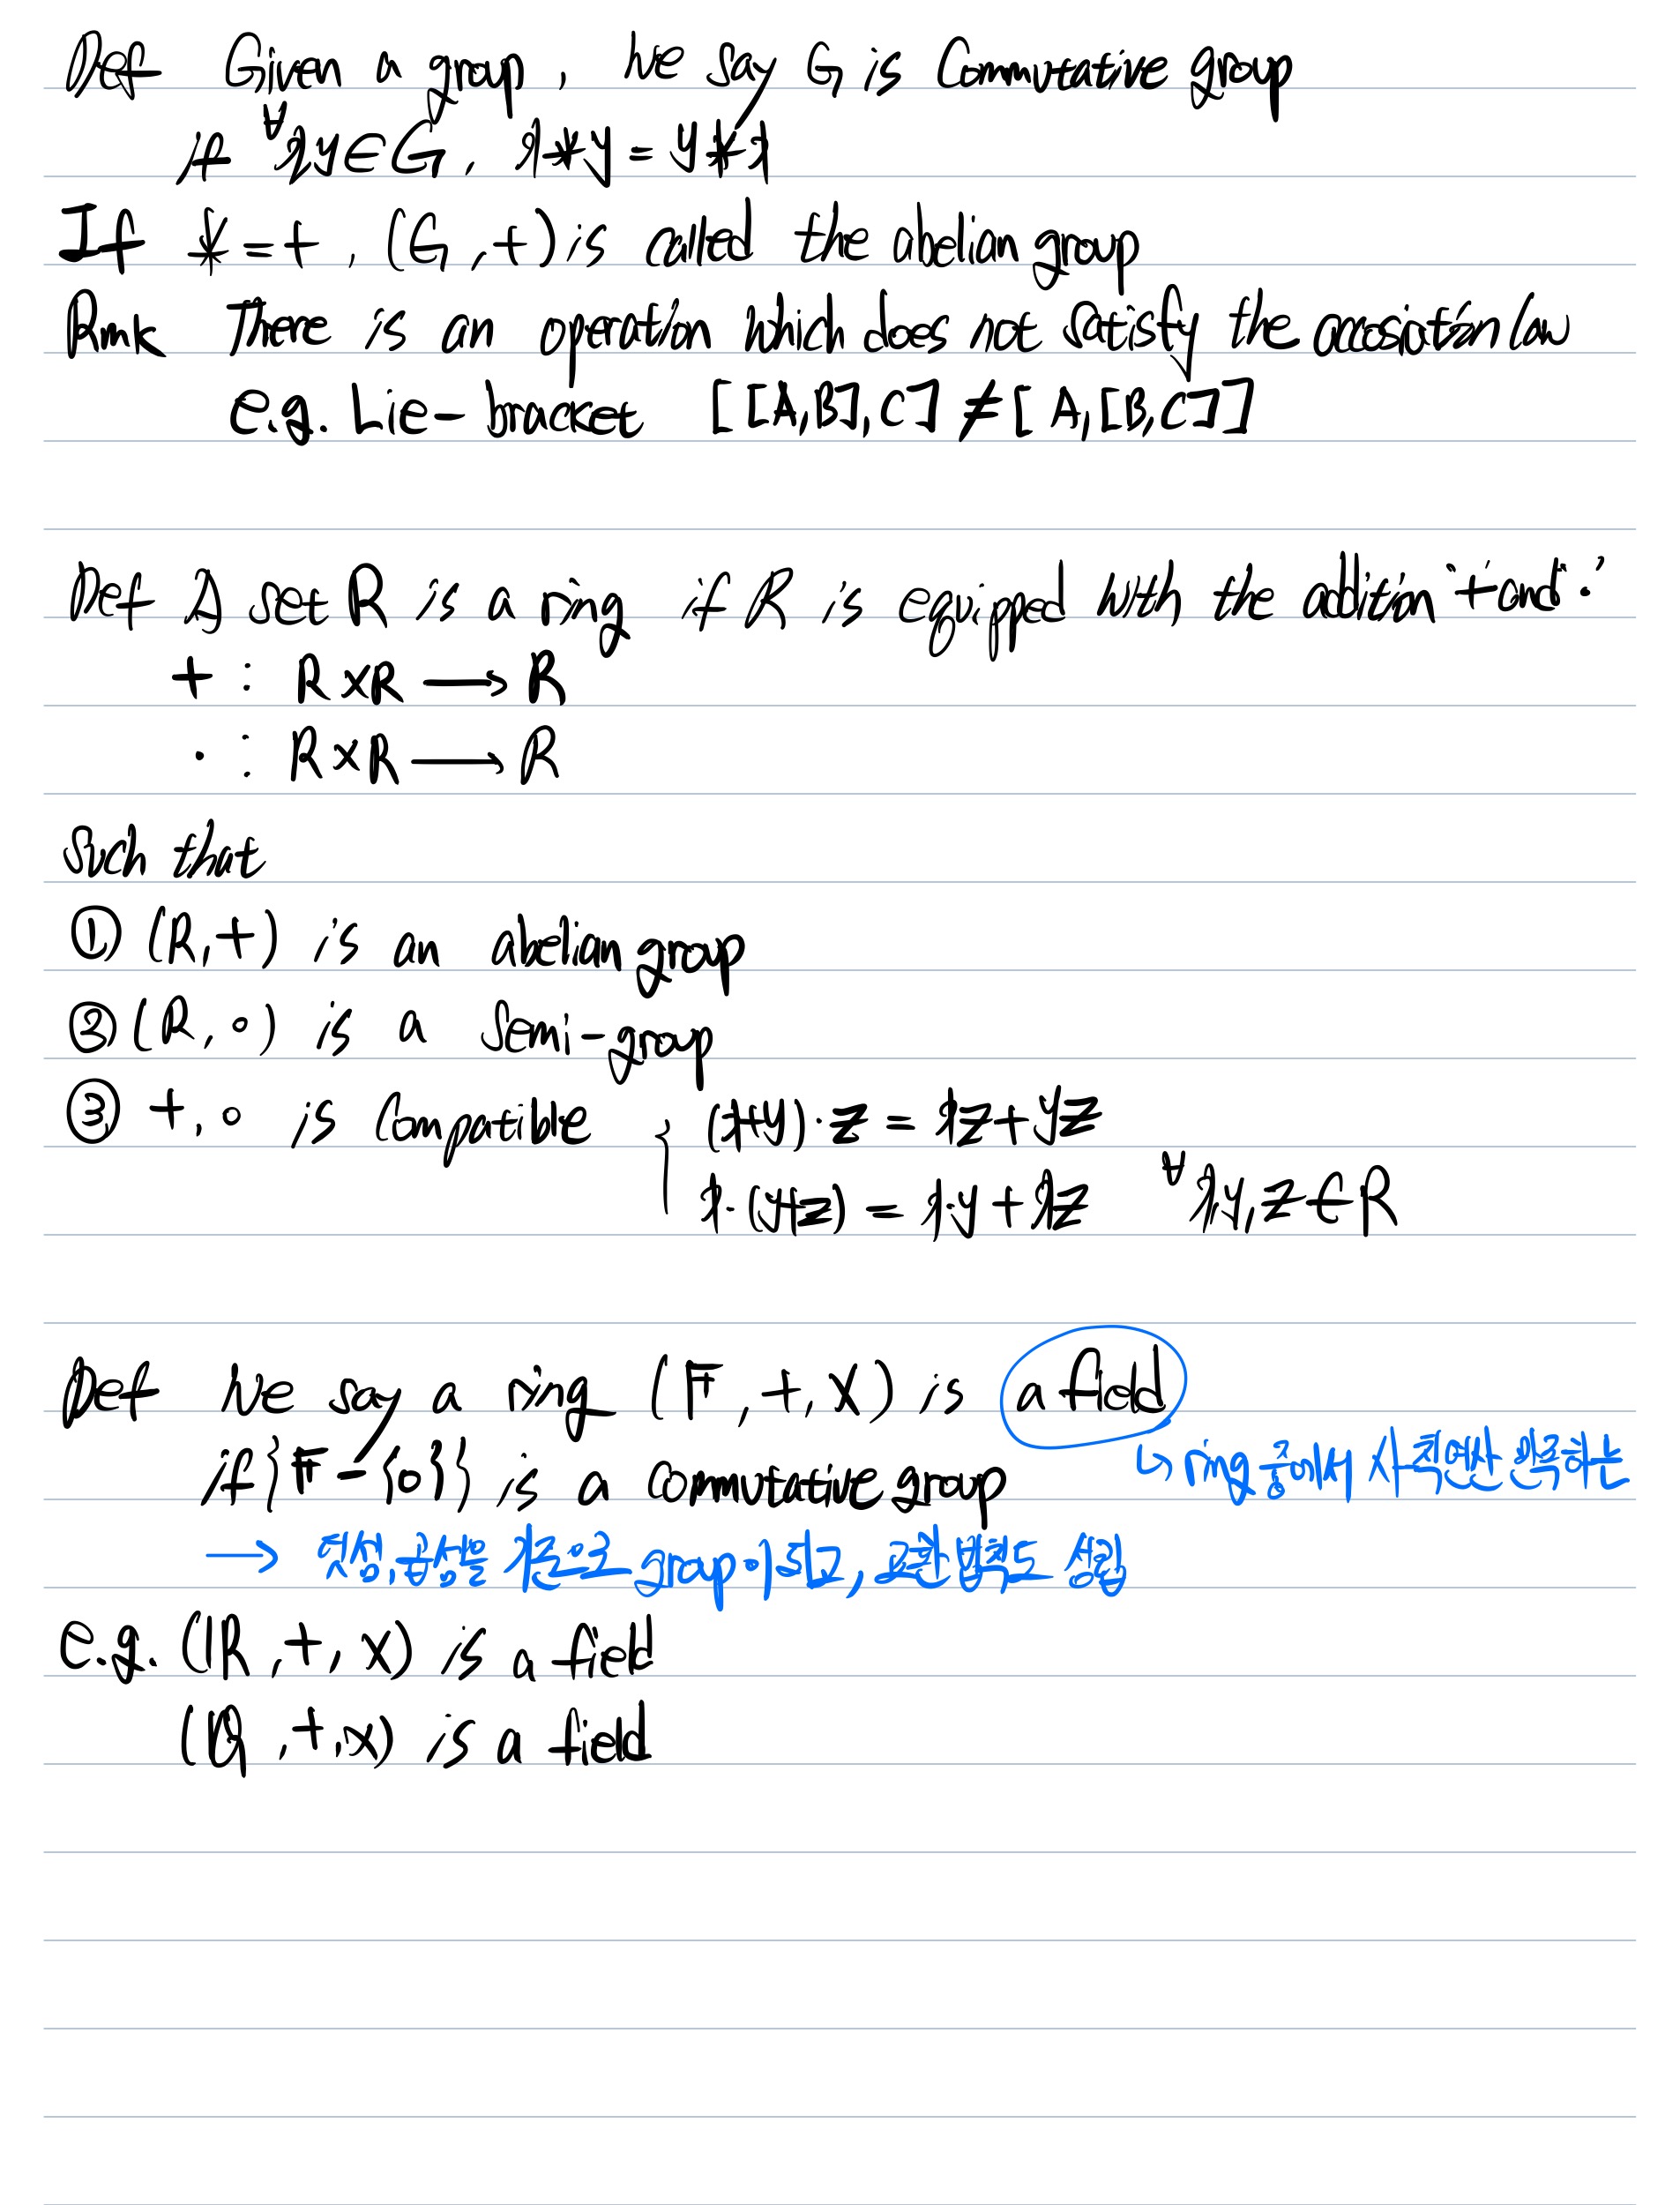 Def Given a group, we say G is Commutative group
if ∀x,y∈G, x*y = y*x
If * = +, (G, +) is called the abelian group
Rmk There is an operation which does not satisfy the law
e.g. Lie-bracket [[A,B],C] ≠ [A,[B,C]]
Def A set R is a ring if R is equipped with the addition "+ and ·"
+ : R×R → R
· : R×R → R
Such that
① (R,+) is an abelian group
② (R,∘) is a Semi-group
③ +,∘ is compatible { (x+y)·z = xz+yz
x·(y+z) = x·y + xz ∀x,y,z∈R
Def We say a ring (F, +, ×) is a field
↳ ring 중에서 사칙연산 만족하는
if {F-{0}} is a commutative group
→ 덧셈, 곱셈을 기준으로 group이 되고, 교환법칙도 성립
e.g. (ℝ, +, ×) is a field
(ℚ, +, ×) is a field